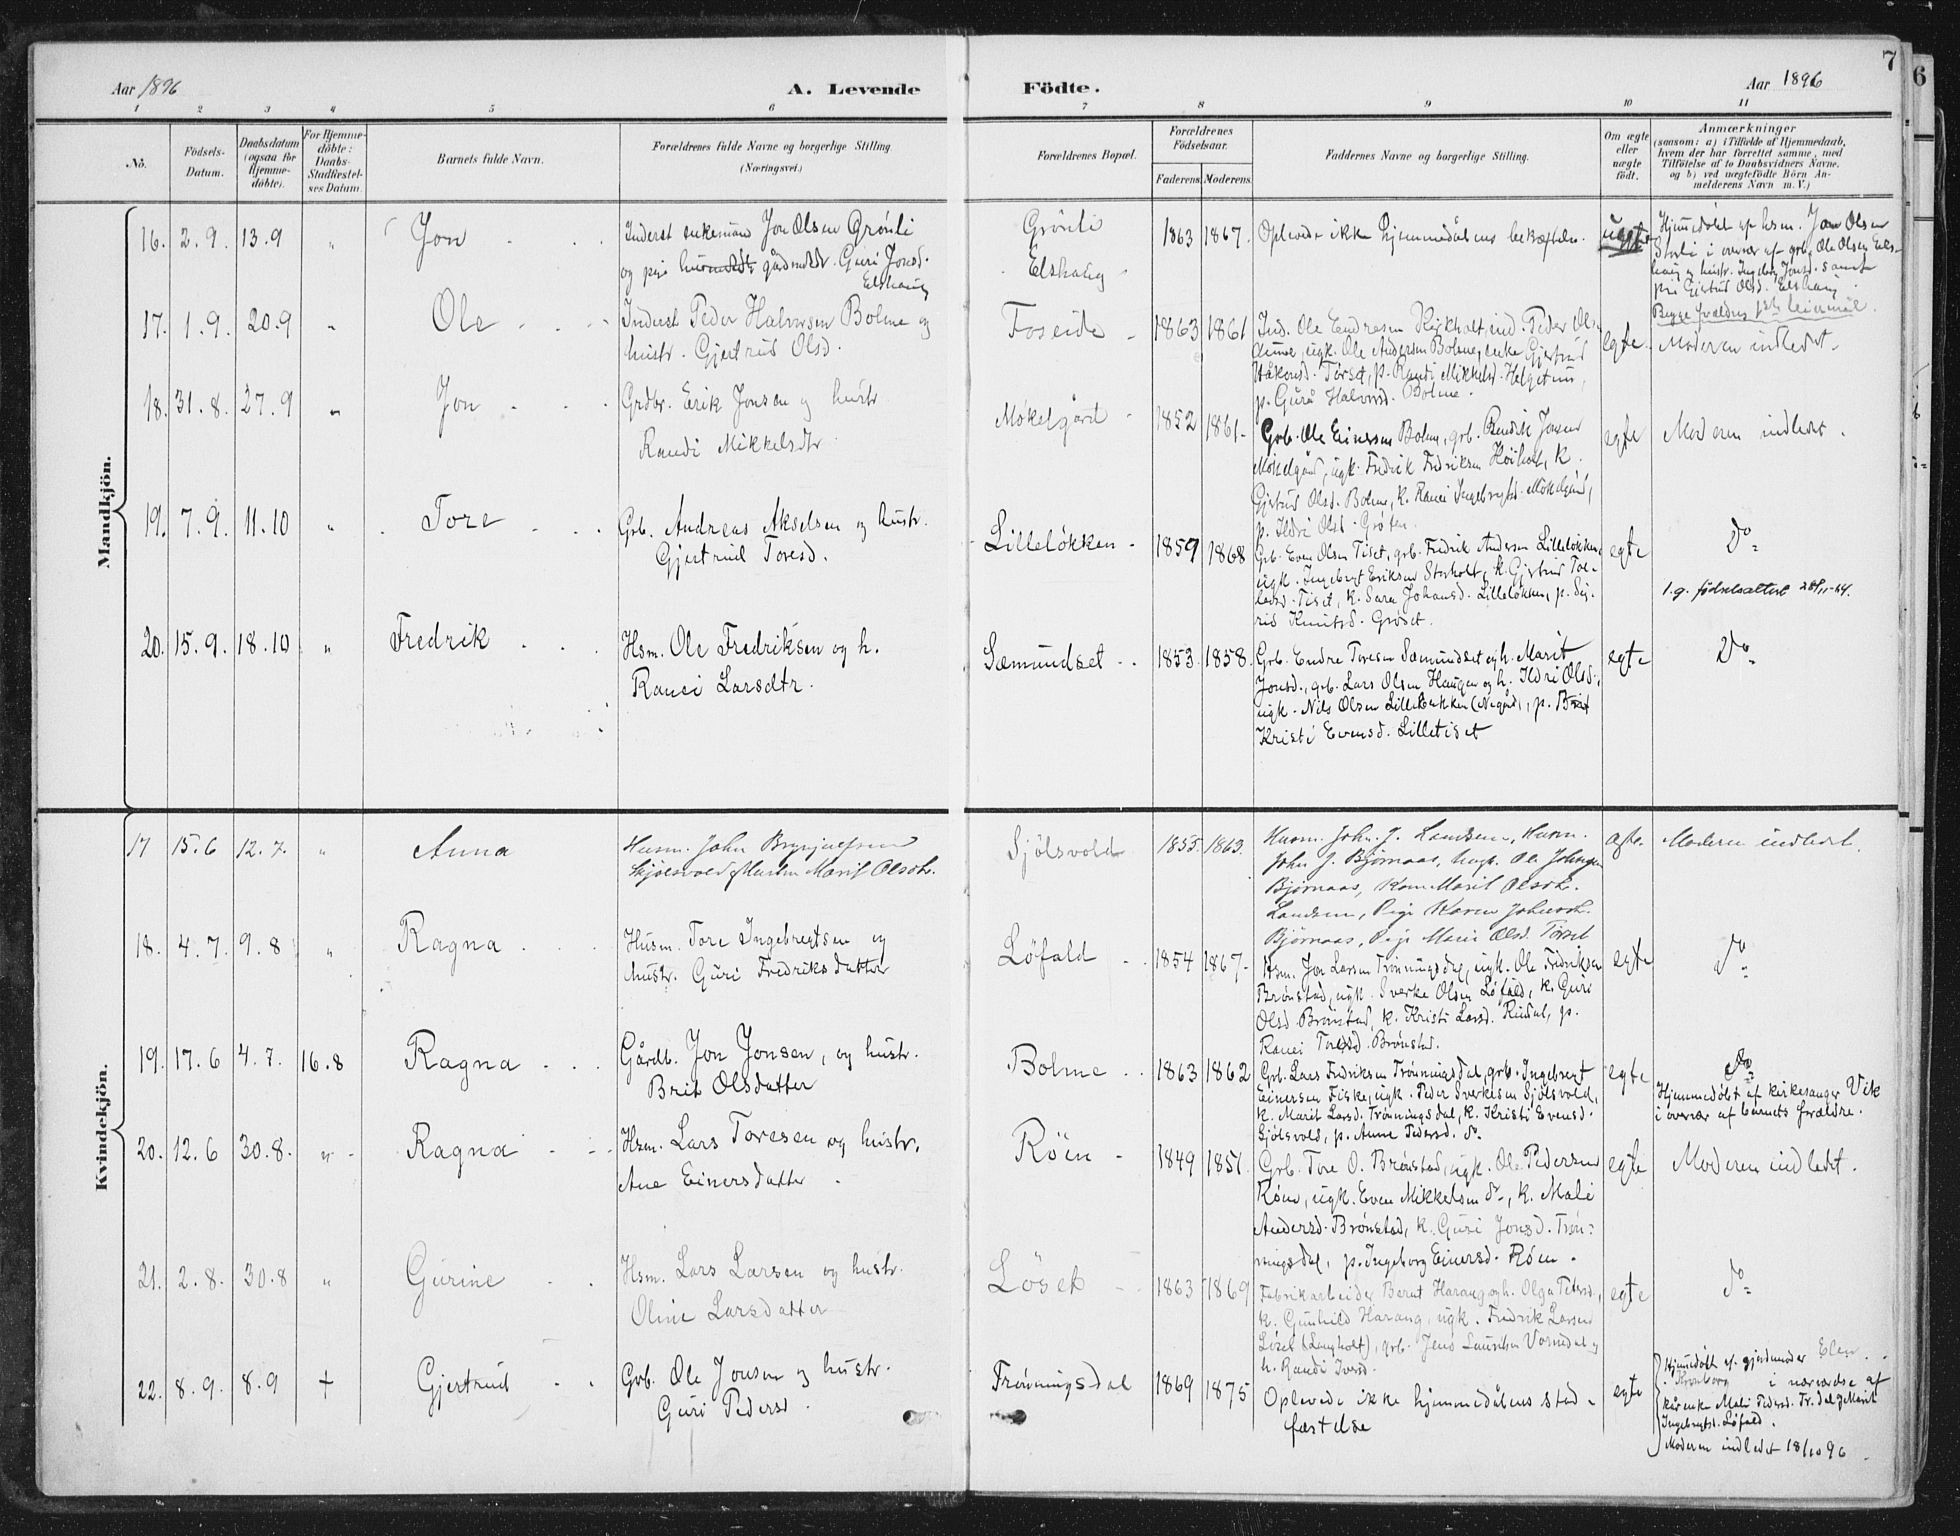 Aar 1896
A. Levende
Födte.
Aar 1896
7
6
1 2 3 4 5 6 7 8 9 10 11
No.
Födsels-
Datum.
Daabsdatum
(ogsaa for
Hjemme-
döbte).
For Hjemme-
döbte:
Daabs-
Stadfæstel-
ses Datum.
Barnets fulde Navn.
Forældrenes fulde Navne og borgerlige Stilling
(Næringsvei.)
Forældrenes Bopæl.
Forældrenes
Födselsaar.
Faderens Moderens
Faddernes Navne og borgerlige Stilling.
Om ægte
eller
uægte
födt.
Anmærkninger
(saasom: a) i Tilfælde af Hjemmedaab,
hvem der har forrettet samme, med
Tilföielse af to Daabsvidners Navne.
og b) ved uægtefödte Börn An-
melderens Navn m. V.)
Mandkjön.
16. 2.9. 13.9 " Jon
Inderst enkemand Jon Olsen Grönli
og pige gårdmdtr. Guri Jonsd.
Elshaug
Grönli
Elshaug
1863 1867.
Oplevede ikke hjemmedåbens bekræftelse.
uegte
Hjemmedøbt af hsm. Jon Olsen
Storli i overvær af grb. Ole Olsen Els-
haug og hustr. Ingeborg Jonsd. samt
pige Gjertrud Olsd. Elshaug.
Begge forældres 1ste leiermål.
17. 1.9. 20.9 " Ole
Inderst Peder Halvorsen Bolme og
hustr. Gjertrud Olsd.
Foseide
1863 1861
Ind. Ole Endresen Kirkholt, ind. Peder Ols-
ungk. Ole Andersen Bolme, enke Gjertrud
Håkonsd. Törset, p. Randi Mikkelsd. Helgetun,
p. Gurå Halvorsd. Bolme.
egte.
Moderen indledet.
18. 31.8. 27.9 " Jon
Grdbr. Erik Jonsen og hustr
Randi Mikkelsdtr
Møkelgård
1852 1861
Grb. Ole Einersen Bolme, grb. Rendik Jonsen
Møkelgård, ugk. Fredrik Fredriksen Høiholt, k.
Gjertrud Olsd. Bolme, k. Ranei Ingebrigtsd. Møkelgård,
p. Ildri Olsd. Grøten.
egte
Moderen indledet.
19. 7.9. 11.10 " Tore
Grb. Andreas Akselsen og hustr.
Gjertrud Toresd.
Lilleløkken
1859 1868
Grb. Even Olsen Tiset, grb. Fredrik Andersen Lilleløkken,
ugk. Ingebrigt Eriksen Storholt, k. Gjertrud Tor-
leivsd. Tiset, k. Sara Johansd. Lilleløkken, p. Sig-
rid Knutsd. Grøset.
egte
Do
1.g. fødselsattest 28/11-54.
20. 15.9. 18.10 " Fredrik
Hsm. Ole Fredriksen og h.
Ranei Larsdtr.
Sæmundset
1853. 1858.
Grb. Endre Toresen Sæmundset og h. Marit
Jonsd., grb. Lars Olsen Haugen og h. Ildri Olsd.,
ugk. Nils Olsen Lilleløkken (Negård), p. Brit
Kristi Evensd. Lilletiset
egte
Do
Kvindekjön.
17 15.6 12.7. " Anna
Husm. John Brynjulfsen
Skjølsvold & Hustru Marit Olsdtr.
Sjölsvold
1855. 1863.
Husm. John J. Landsem, Husm.
John J. Bjørnaas, Ungk. Ole Johnsen
Bjørnaas, Kone Marit Olsdtr.
Landsem, Pige Karen Johnsdtr.
Bjørnaas, Pige Marie Olsd. Törset
ægte.
Moderen indledt.
18. 4.7. 9.8 " Ragna
Husm. Tore Ingebregtsen og
hustr. Guri Fredriksdatter
Løfald
1854 1867.
Hsm. Jon Larsen Trønningsdal, ugk. Ole Fredriksen
Brønstad, ugk. Sverke Olsen Løfald, k. Guri
Olsd. Brønstad, k. Kristi Larsd. Rindal, p.
Ranei Toresd. Brønstad.
egte
Do
19. 17.6 4.7. 16.8 Ragna
Gårdb. Jon Jonsen, og hustr.
Brit Olsdatter
Bolme
1863 1862
Grb. Lars Fredriksen Trønningsdal, grb. Ingebregt
Einersen Fiske, ugk. Peder Sverkesen Sjölsvold,
k. Marit Larsd. Trønningsdal, k. Kristi Evensd.
Sjölsvold, p. Anne Pedersd. do.
egte
Do
Hjemmedøbt af kirkesanger Vik
i overvær af barnets forældre.
20. 12.6 30.8. " Ragna
Hsm. Lars Toresen og hustr.
Ane Einersdatter
Röen
1849 1851.
Grb. Tore O. Brønstad, ugk. Ole Pedersen
Røen, ugk. Even Mikkelsen do, k. Mali
Andersd. Brønstad, k. Guri Jonsd. Trøn-
ningsdal, p. Ingeborg Einersd. Røen.
egte
Moderen indledet.
21. 2.8. 30.8 " Gurine
Hsm. Lars Larsen og hustr.
Oline Larsdatter
Løset
1863 1869
Fabrikarbeider Bernt Harang og h. Olga Petersd.,
k. Gunhild Harang, ugk. Fredrik Larsen
Løset (Langholt), grb. Jens Lauritsen Vormdal og
h. Randi Iversd.
egte
Do
22. 8.9. 8.9 + Gjertrud
Grb. Ole Jonsen og hustr.
Guri Pedersd.
Trønningsdal
1869 1875
Oplevede ikke hjemmedåbens stad-
fæstelse
egte
Hjemmedøbt af gjordmoder Elen
Kronborg i nærværelse af
kårenke Mali Pedersd. Tr.dal & Marit
Ingebrigtsd. Løfald.
Moderen indledet 18/10 96